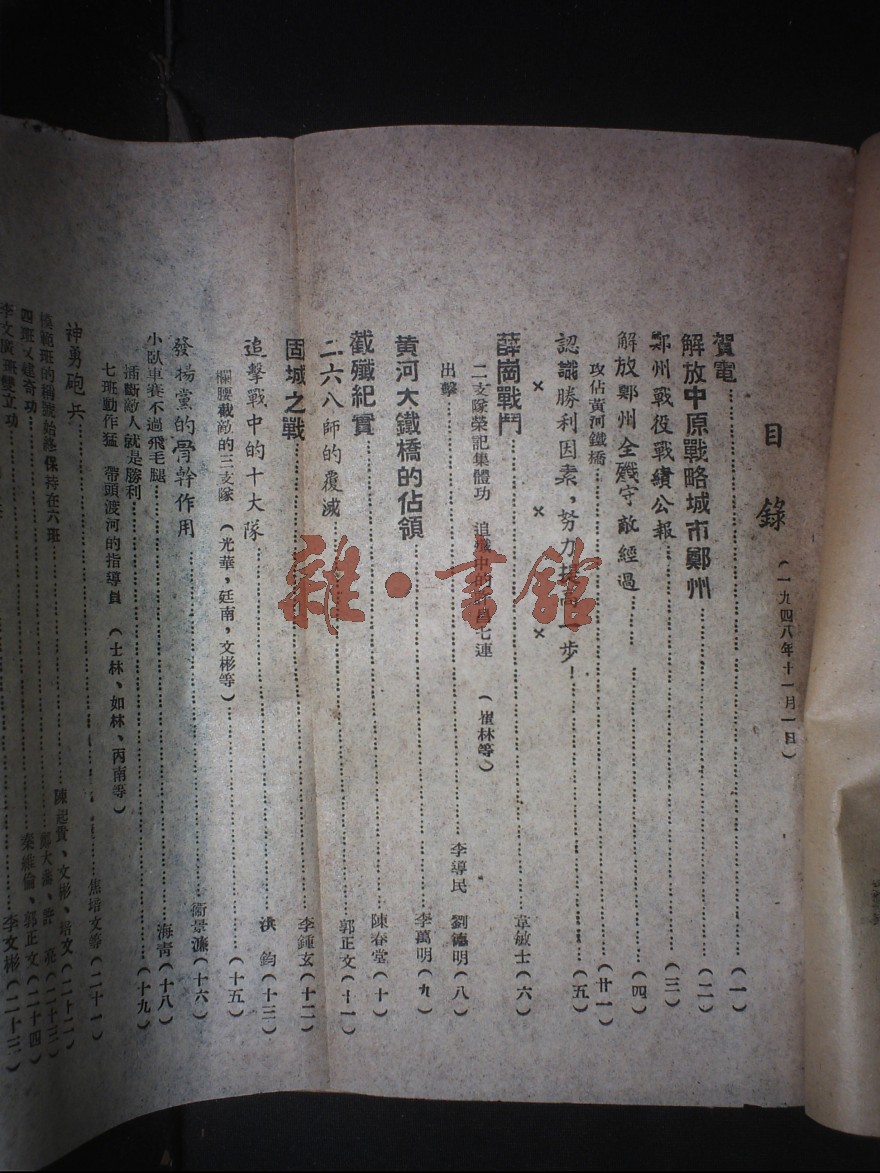 目錄（一九四八年十一月一日）
賀電……（一）
解放中原戰略城市鄭州……（二）
鄭州戰役戰績公報……（三）
解放鄭州全殲守敵經過……（四）
攻佔黃河鐵橋……（廿一）
認識勝利因素，努力提高一步！……（五）
× × ×
薛崗戰鬥……韋敏士（六）
二支隊榮記集體功 追殲中的 七連（崔林等）
出擊……李導民 劉德明（八）
黃河大鐵橋的佔領……李萬明（九）
截殲紀實……陳春堂（十）
二六八師的覆滅……郭正文（十一）
固城之戰……李鍾玄（十二）
追擊戰中的十大隊……洪鈞（十三）
攔腰截敵的三支隊（光華，廷南，文彬等）……（十五）
發揚黨的骨幹作用……衞景濂（十六）
小臥車賽不過飛毛腿……海青（十八）
插斷敵人就是勝利……（十九）
七班動作猛 帶頭渡河的指導員（士林、如林、丙南等）
神勇砲兵……焦培文等（二十一）
模範班的稱號始終保持在六班……陳起貴、文彬、培文（二十二）
四班又建奇功……（二十三）
李文廣班雙立功……秦維倫、郭正文（二十四）
李文彬（二十三）
雜·書館